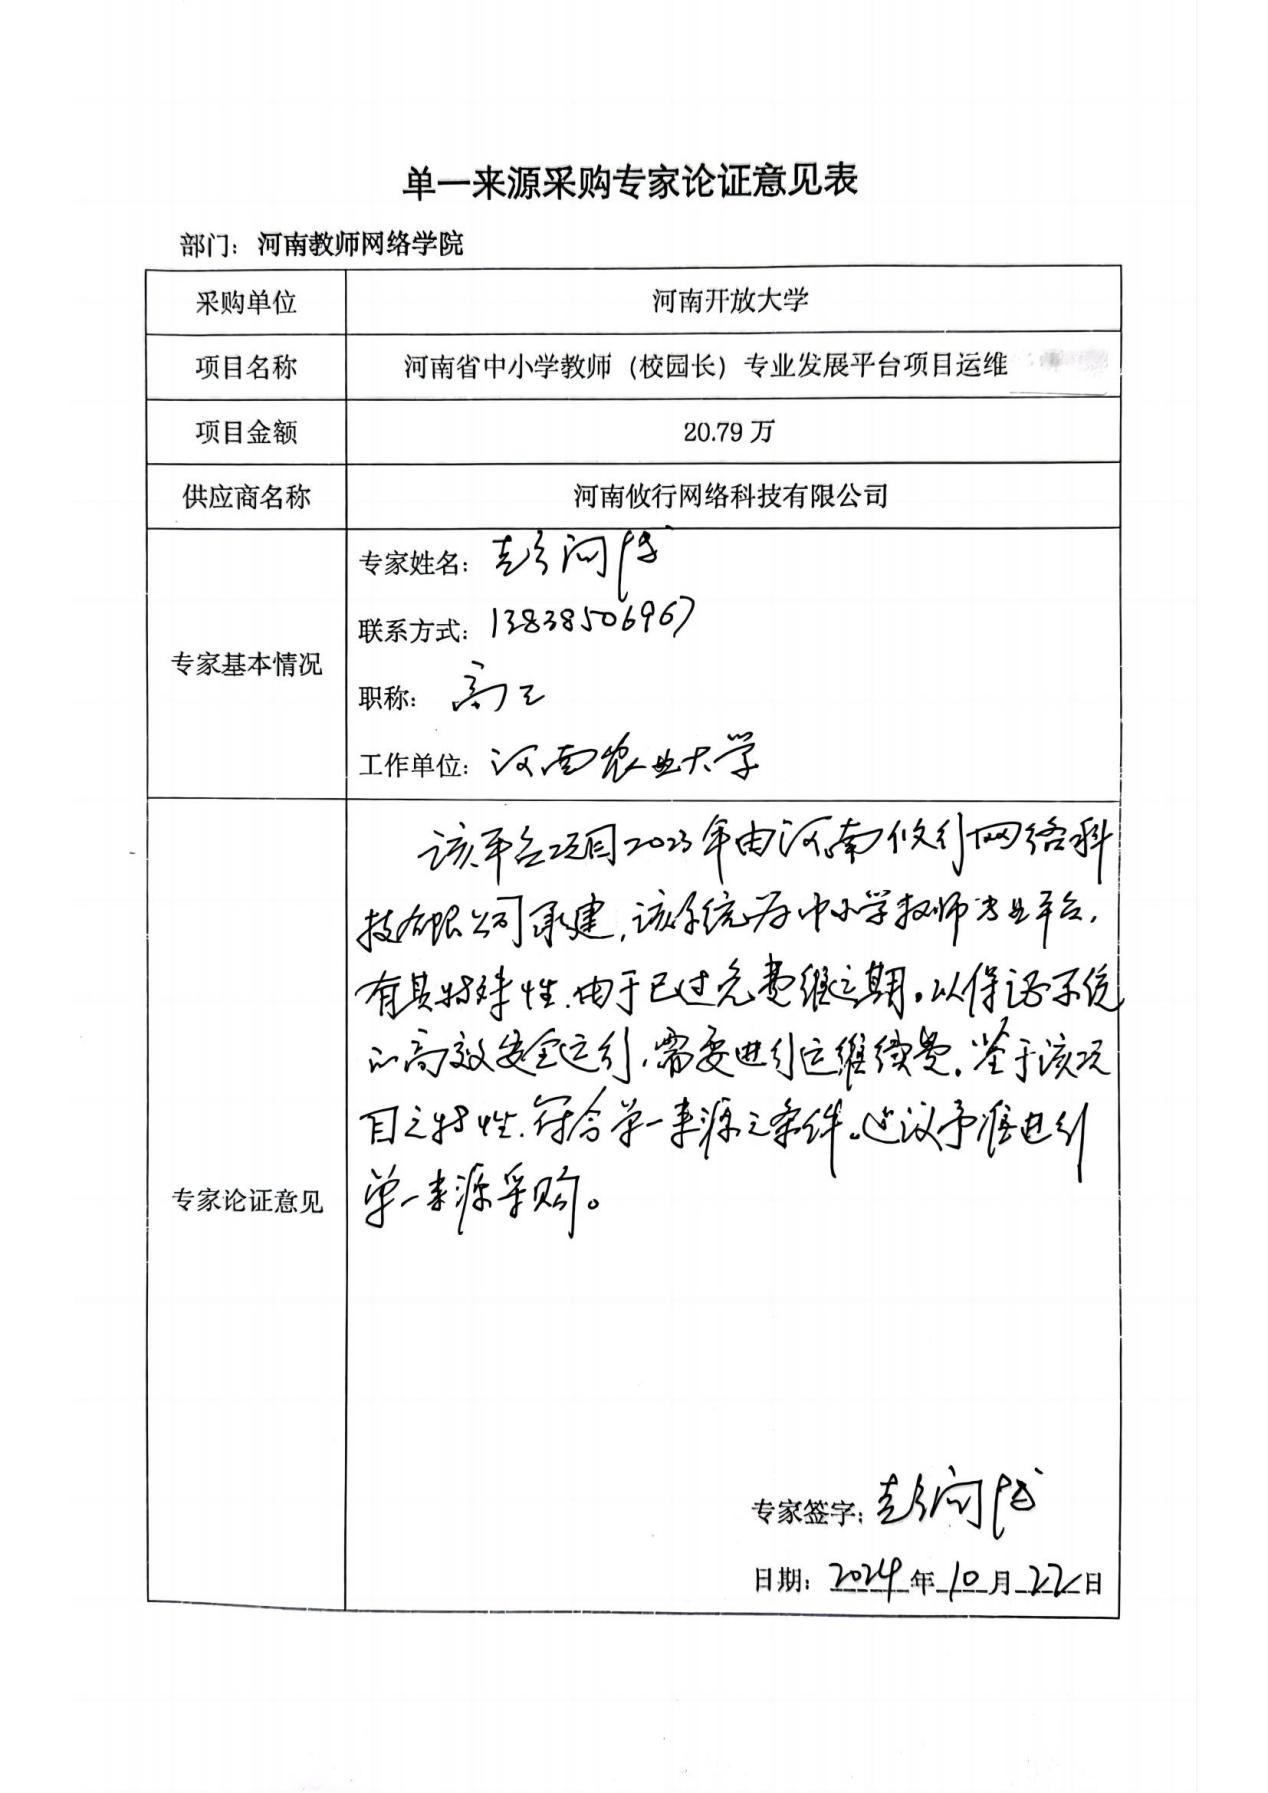 单一来源采购专家论证意见表
部门：河南教师网络学院
采购单位 河南开放大学
项目名称 河南省中小学教师（校园长）专业发展平台项目运维
项目金额 20.79 万
供应商名称 河南攸行网络科技有限公司
专家基本情况
专家姓名：彭
联系方式：13838506967
职称：高工
工作单位：河南农业大学
专家论证意见
该平台项目2023年由河南攸行网络科
技有限公司承建，该系统为中小学教师专业平台，
有其特殊性，由于已过免费维运期。以保证系统
的高效安全运行，需要进行运维续费。鉴于该项
目之特性，符合单一来源之条件。建议予准进行
单一来源采购。
专家签字：彭
日期：2024年10月22日